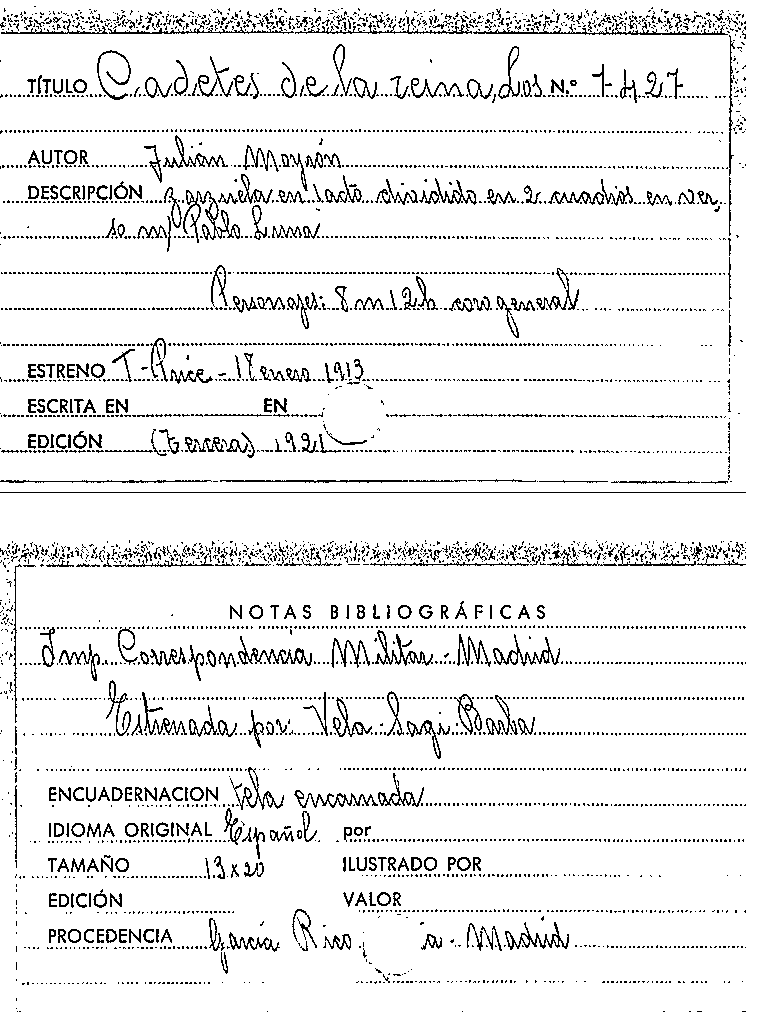 TÍTULO Cadetes de la reina, Los N.º 1-427
AUTOR Julián Moyrón
DESCRIPCIÓN zarzuela en 1 acto dividido en 2 cuadros en ver,
so mº Pablo Luna
Personajes: 8 m 12 h coro general
ESTRENO T-Price - 18 enero 1913
ESCRITA EN EN
EDICIÓN (Tercera) 1921
NOTAS BIBLIOGRÁFICAS
Imp. Correspondencia Militar - Madrid
Estrenada por: Vela - Sagi - Barba
ENCUADERNACION tela encarnada
IDIOMA ORIGINAL Español por
TAMAÑO 13x20 ILUSTRADO POR
EDICIÓN VALOR
PROCEDENCIA García Rico ia - Madrid